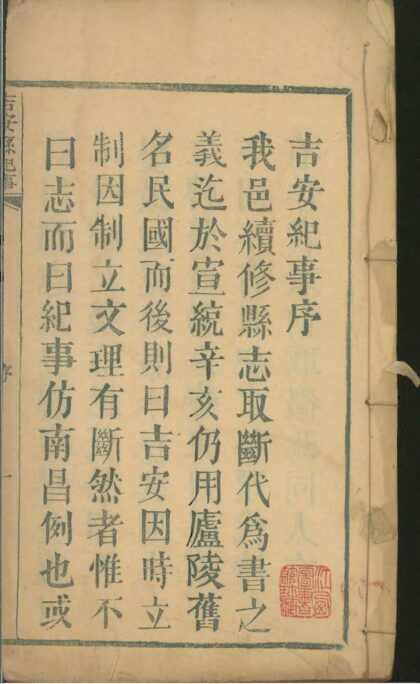 吉安紀事序
我邑續修縣志取斷代爲書之
義迄於宣統辛亥仍用廬陵舊
名民國而後則曰吉安因時立
制因制立文理有斷然者惟不
曰志而曰紀事仿南昌例也或
吉安縣紀事
序
一